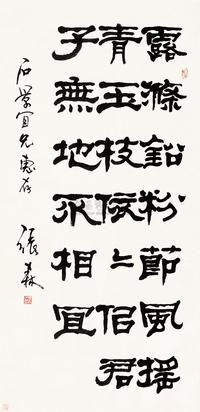 露滌鉛粉節風搖
青玉枝依〻佀君
子無地不相宜
石景宜兄惠存
張森